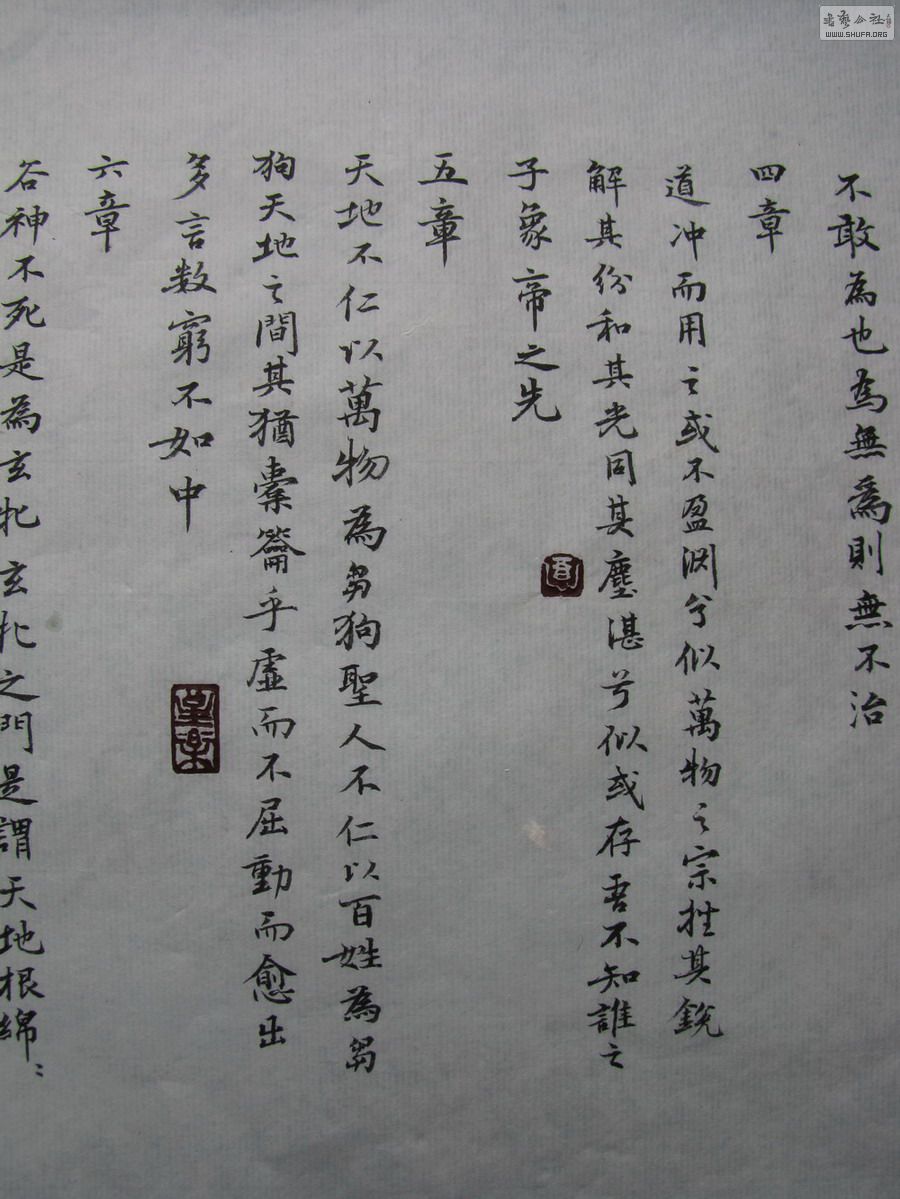 不敢為也為無為則無不治
四章
道冲而用之或不盈渊兮似萬物之宗挫其銳
解其份和其光同其塵湛兮似或存吾不知誰之
子象帝之先
五章
天地不仁以萬物為芻狗聖人不仁以百姓為芻
狗天地之間其猶橐籥乎虛而不屈動而愈出
多言数窮不如中
六章
谷神不死是為玄牝玄牝之門是謂天地根綿〻
WWW.SHUFA.ORG